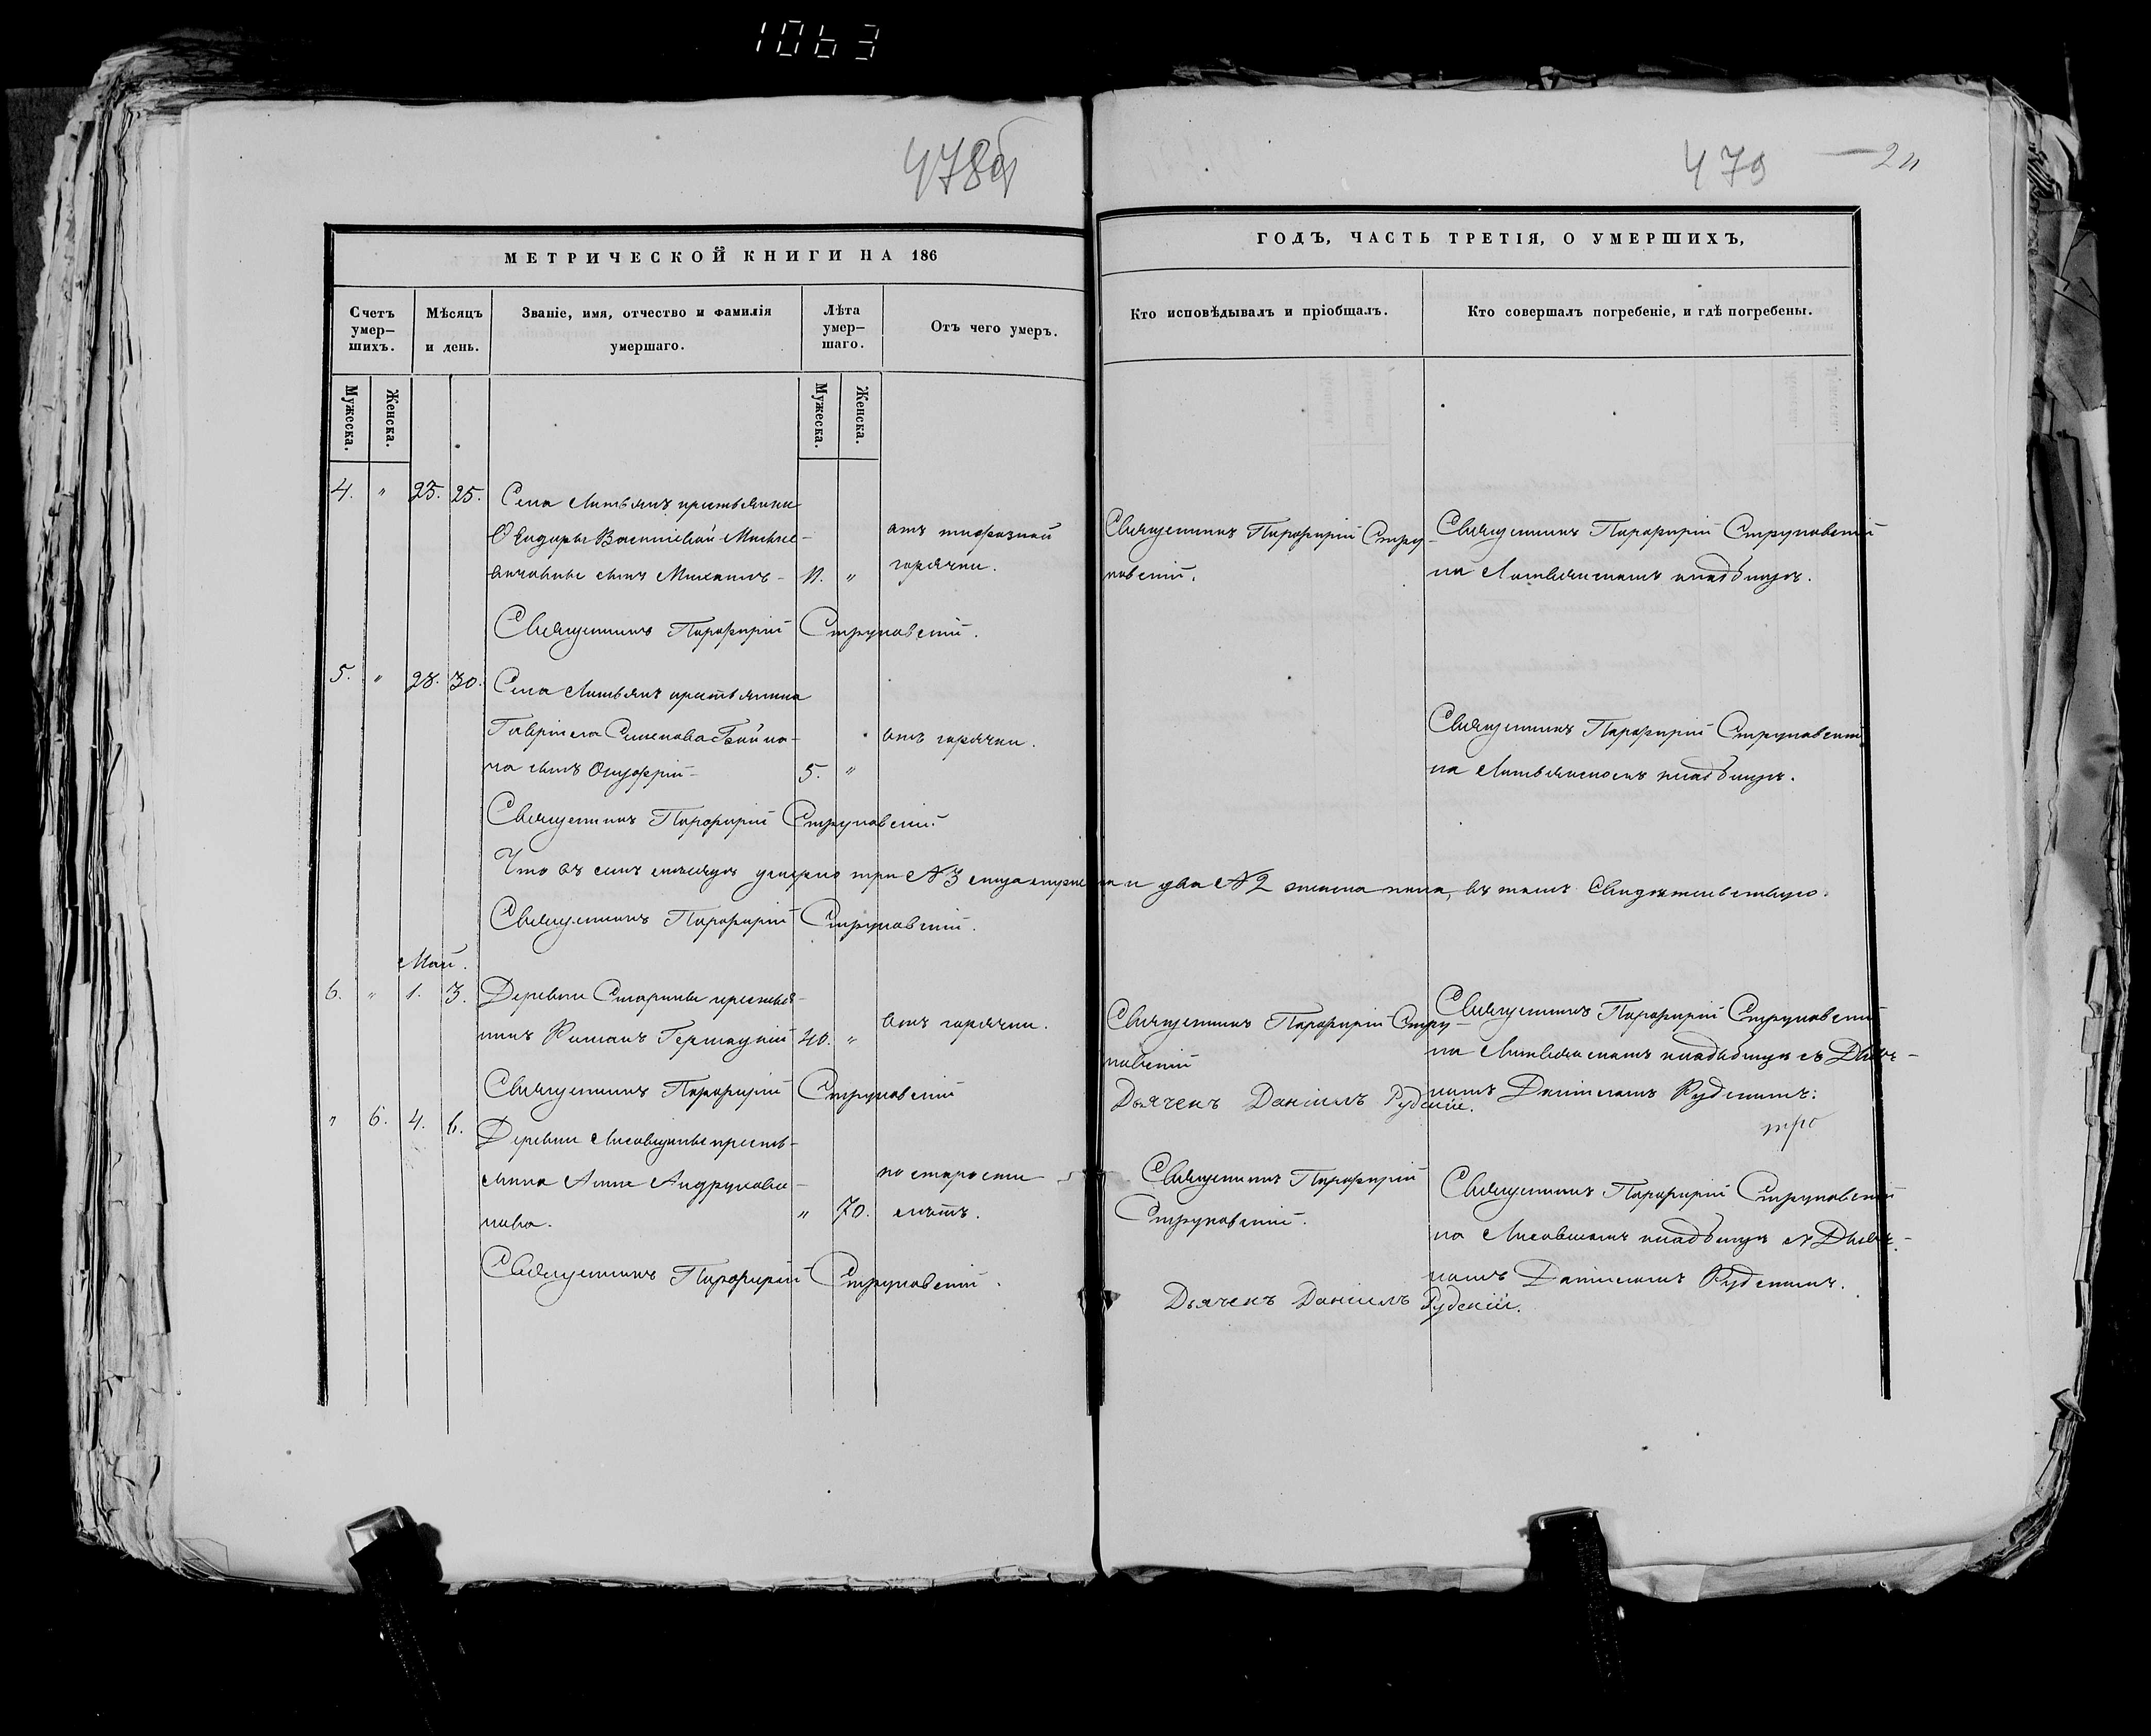 1063
478об
479
МЕТРИЧЕСКОЙ КНИГИ НА 186
ГОДЪ, ЧАСТЬ ТРЕТІЯ, О УМЕРШИХЪ,
Счетъ умер–шихъ.
Мѣсяцъ и день.
Званіе, имя, отчество и фамилія умершаго.
Лѣта умер–шаго.
Отъ чего умеръ.
Кто исповѣдывалъ и пріобщалъ.
Кто совершалъ погребеніе, и гдѣ погребены.
Мужеска.
Женска.
Мужеска.
Женска.
4. " 23. 25. Села Литвянъ крестьянки
Василіевой
сынъ Михаилъ 11. "
отъ тифозной
горячки.
Священникъ Порфирій Стру-
ковскій.
Священникъ Порфирій Струковскій
на Литвянскомъ кладбищѣ.
Священникъ Порфирій Струковскій.
5. " 28. 30. Села Литвянъ крестьянина
Гавріила Семенова
сынъ Онуфрій 5. "
отъ горячки.
Священникъ Порфирій Струковскій
на Литвянскомъ кладбищѣ.
Священникъ Порфирій Струковскій.
Что въ семъ мѣсяцѣ умерло три № 3 лица мужеска и два № 2 женска пола, въ томъ свидѣтельствую.
Священникъ Порфирій Струковскій.
Май.
6. " 1. 3. Деревни Старины крестья-
нинъ Романъ 40. "
отъ горячки.
Священникъ Порфирій Стру-
ковскій
Дьячекъ Даніилъ Рудскій.
Священникъ Порфирій Струковскій
на Литвянскомъ кладбищѣ съ Дьяч-
комъ Даніиломъ Рудскимъ.
Священникъ Порфирій Струковскій
" 6. 4. 6. Деревни Лисовщины кресть-
янка Анна
" 70.
по старости
лѣтъ.
Священникъ Порфирій
Струковскій.
Дьячекъ Даніилъ Рудскій.
Священникъ Порфирій Струковскій
на Лисовскомъ кладбищѣ съ Дьяч-
комъ Даніиломъ Рудскимъ.
Священникъ Порфирій Струковскій.